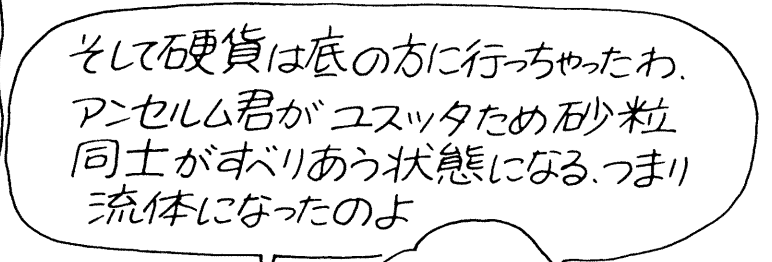 そして硬貨は底の方に行っちゃったわ、
アンセルム君がユスッタため砂粒
同士がすべりあう状態になる、つまり
流体になったのよ